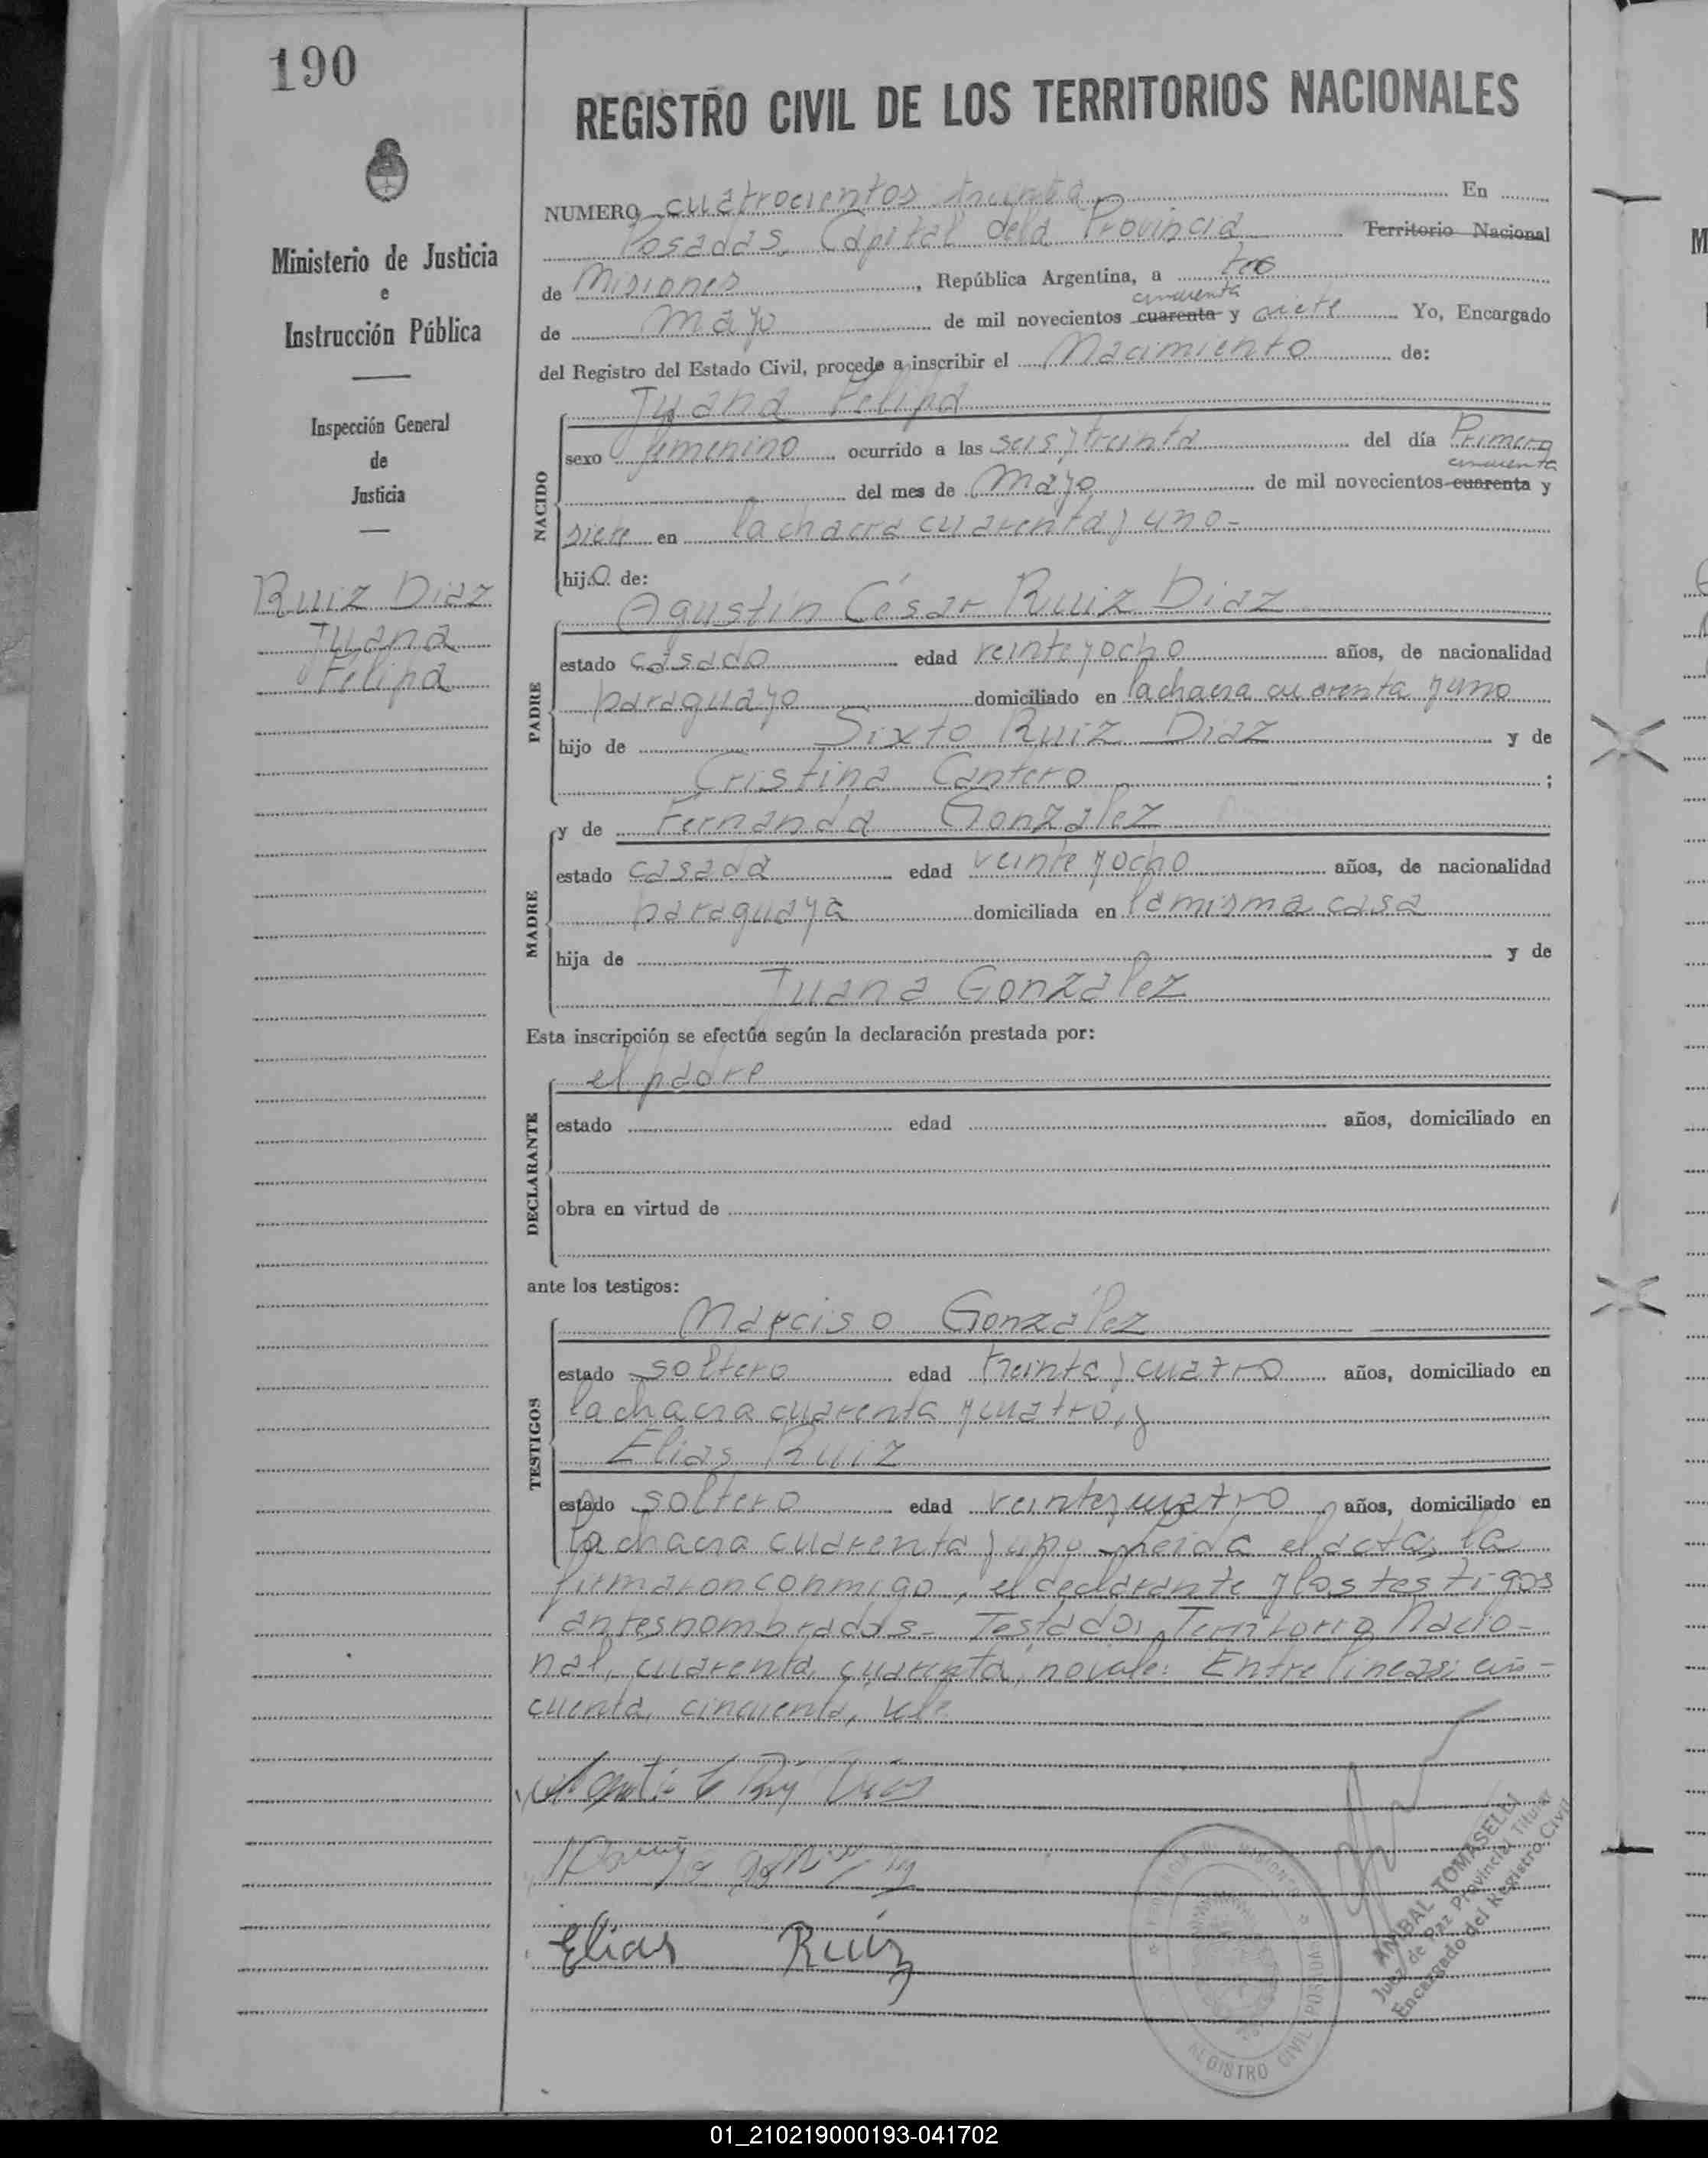 190
REGISTRO CIVIL DE LOS TERRITORIOS NACIONALES
Ministerio de Justicia
e
Instrucción Pública
Inspección General
de
Justicia
Ruiz Diaz
Juana
Felipa
NUMERO cuatrocientos treinta En
Posadas, Capital dela Provincia Territorio Nacional
de Misiones, República Argentina, a tres
cincuenta
de mayo de mil novecientos cuarenta y siete Yo, Encargado
del Registro del Estado Civil, procedo a inscribir el Nacimiento de:
NACIDO
Juana Felipa
sexo femenino ocurrido a las seis y treinta del día Primero
cincuenta
del mes de Mayo de mil novecientos cuarenta y
siete en la chacra cuarenta y uno-
hija de:
PADRE
Agustín César Ruiz Diaz
estado casado edad veinte y ocho años, de nacionalidad
paraguayo domiciliado en la chacra cuarenta y uno
hijo de Sixto Ruiz Diaz y de
Cristina Cantero ;
MADRE
y de Fernanda González
estado casada edad veinte y ocho años, de nacionalidad
paraguaya domiciliada en la misma casa
hija de y de
Juana González
Esta inscripción se efectúa según la declaración prestada por:
DECLARANTE
el padre
estado edad años, domiciliado en
obra en virtud de
ante los testigos:
TESTIGOS
Narciso González
estado soltero edad treinta y cuatro años, domiciliado en
la chacra cuarenta y cuatro, y
Elias Ruiz
estado soltero edad veinte y cuatro años, domiciliado en
la chacra cuarenta y uno leida el acta, la
firmaron conmigo, el declarante y los testigos
antes nombrados- Testado: Territorio Nacio-
nal, cuarenta, cuarenta, no vale: Entre líneas: cin-
cuenta, cincuenta, vale
Elias Ruiz
REGISTRO CIVIL POSADAS
ANIBAL TOMASELLI
Juez de Paz Provincial Titular
Encargado del Registro Civil
01_210219000193-041702